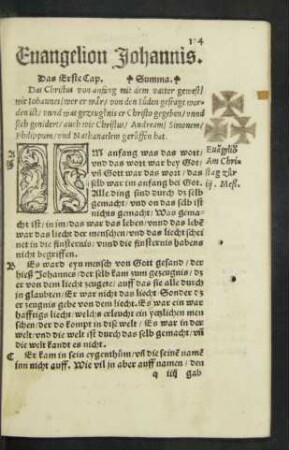 Euangelion Johannis.
Das Erste Cap. Summa.
Das Christus von anfang mit dem vatter gewest/
wie Johannes/ wer er wär/ von den Juden gefragt wor-
den ist/ vnnd was gezeugknis er Christo gegeben/ vnnd
sich genidert/ auch wie Christus/ Andream/ Simonem/
Philippum/ vnd Nathanaelem gerüffen hat.
Euägliõ
Am Chris
stag zůr
iij. Mess.
A
IM anfang was das wort/
vnd das wort war bey Got/
vñ Gott war das wort/ das
selb war im anfang bei Got.
Alle ding sind durch dz selb
gemacht/ vnd on das selb ist
nichts gemacht/ Was gema-
cht ist/ in im/ das war das leben/ vnnd das lebē
war das liecht der menschen/ vnd das liecht schei
net in die finsternis/ vnnd die finsternis habens
nicht begriffen.
B Es ward eyn mensch von Gott gesand/ der
hieß Johannes/ der selb kam zum gezeugnis/ dz
er von dem liecht zeugete/ auff das sie alle durch
in glaubten/ Er war nicht das liecht Sonder dz
er zeugnis gebe von dem liecht. Es war ein war
hafftigs liecht/ welchs erleucht ein yeglichen men
schen/ der do kompt in dise welt/ Es war in der
welt/ vnd die welt ist durch das selb gemacht/ vñ
die welt kandt es nicht.
C Er kam in sein eygenthům/ vñ die seinē namē
inn nicht auff. Wie vil jn aber auff namen/ den
q iiij gab